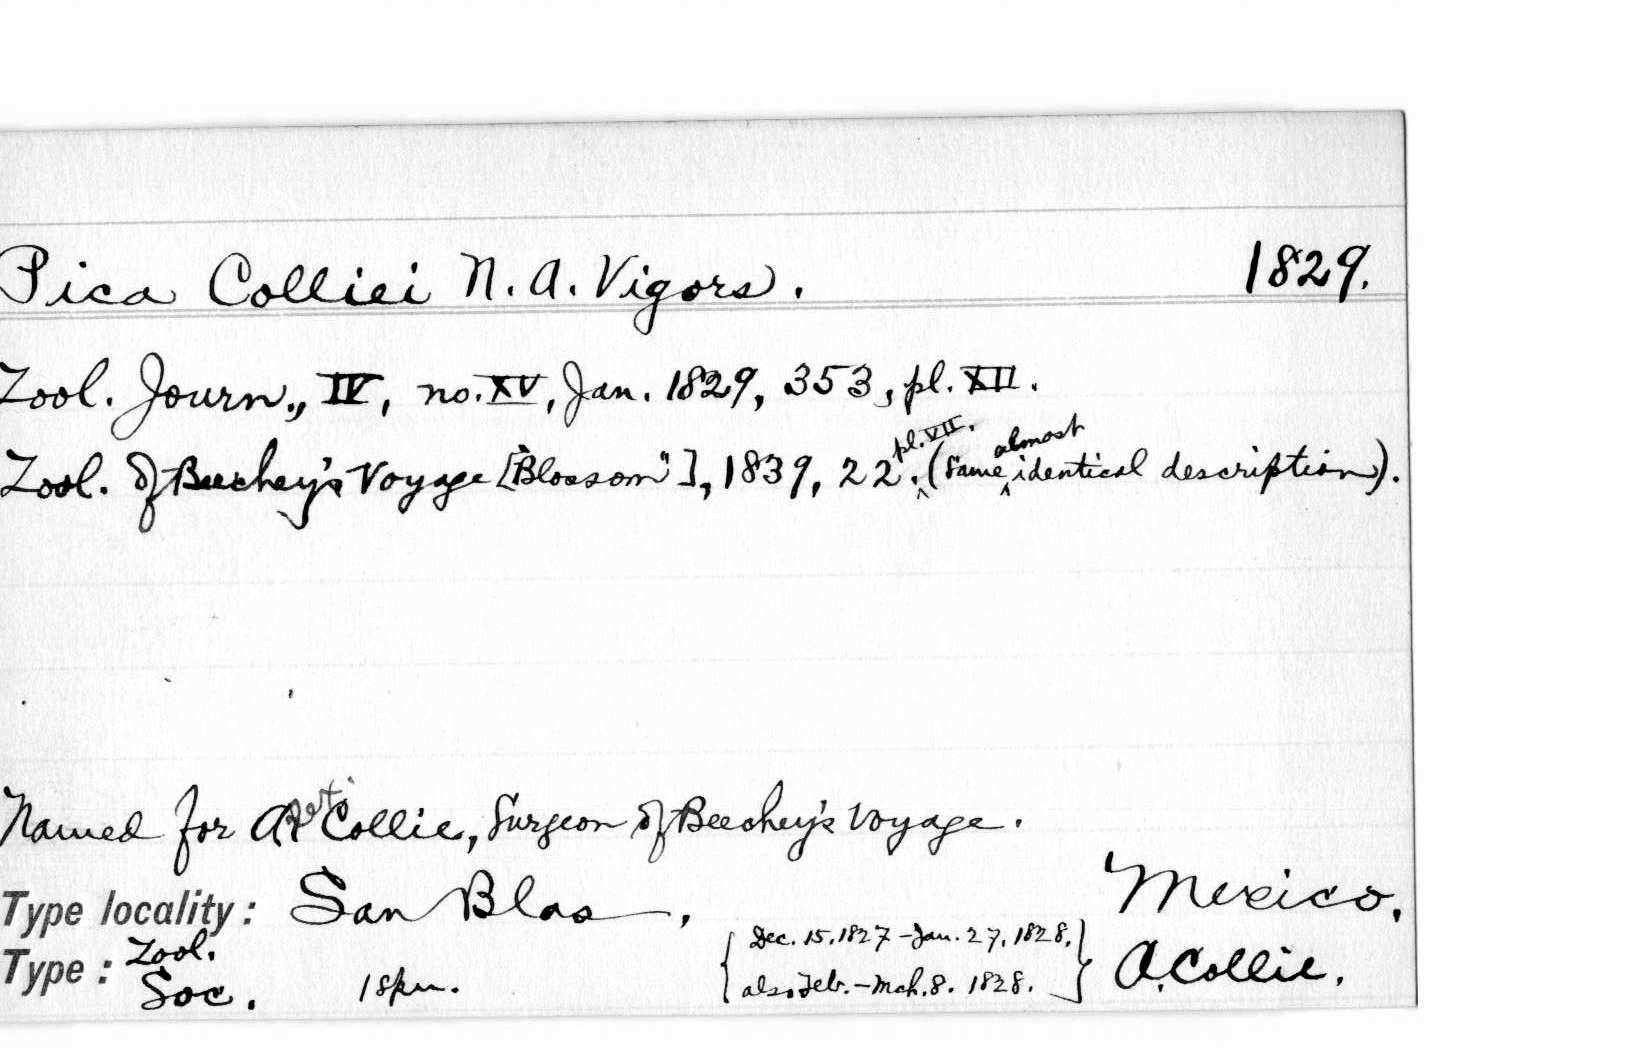 Pica Colliei N. A. Vigors. 1829.
Zool. Journ., IV, no. XV, Jan. 1829, 353, pl. XII.
Zool. of Beechey's Voyage ["Blossom"], 1839, 22, pl. VII. (same almost identical description).
Named for A Collie, Surgeon of Beechey's Voyage.
Type locality: San Blas, Mexico.
Type: Zool. Soc. 1 spm. {Dec. 15, 1827 - Jan. 27, 1828, also Feb. - Mch. 8. 1828.} A. Collie.